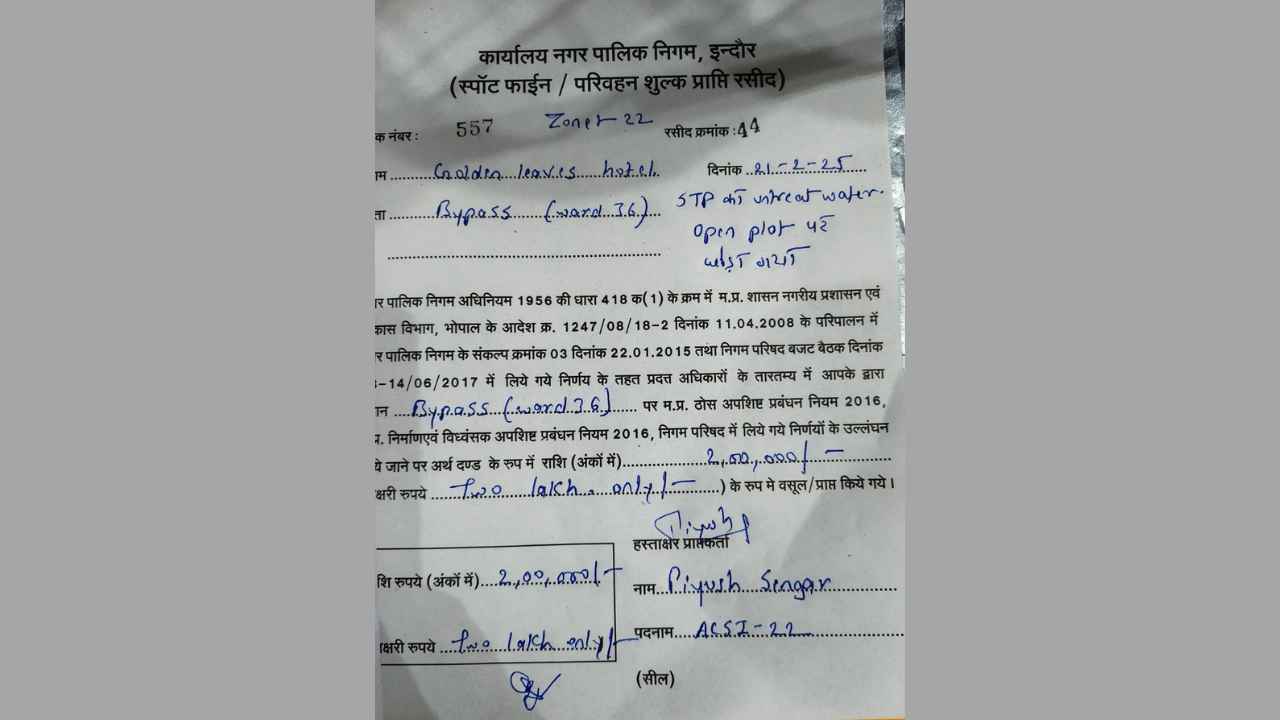 कार्यालय नगर पालिक निगम, इन्दौर
(स्पॉट फाईन / परिवहन शुल्क प्राप्ति रसीद)
क नंबर : 557 Zone-22 रसीद क्रमांक :44
म Golden leaves hotel. दिनांक 21-2-25
ता Bypass (ward 36) STP का untreat water.
open plot पर
छोड़ा गया
र पालिक निगम अधिनियम 1956 की धारा 418 क(1) के क्रम में म.प्र. शासन नगरीय प्रशासन एवं
कास विभाग, भोपाल के आदेश क्र. 1247/08/18-2 दिनांक 11.04.2008 के परिपालन में
र पालिक निगम के संकल्प क्रमांक 03 दिनांक 22.01.2015 तथा निगम परिषद बजट बैठक दिनांक
-14/06/2017 में लिये गये निर्णय के तहत प्रदत्त अधिकारों के तारतम्य में आपके द्वारा
ान Bypass (ward 36) पर म.प्र. ठोस अपशिष्ट प्रबंधन नियम 2016,
प्र. निर्माणएवं विध्वंसक अपशिष्ट प्रबंधन नियम 2016, निगम परिषद में लिये गये निर्णयों के उल्लंघन
ये जाने पर अर्थ दण्ड के रुप में राशि (अंकों में) 2,00,000/-
क्षरी रुपये Two lakh only/- ) के रुप मे वसूल/प्राप्त किये गये।
Piyush
हस्ताक्षर प्राप्तकर्ता
शि रुपये (अंकों में) 2,00,000/-
नाम Piyush Sengar
पदनाम ACSI-22
क्षरी रुपये Two lakh only/-
(सील)